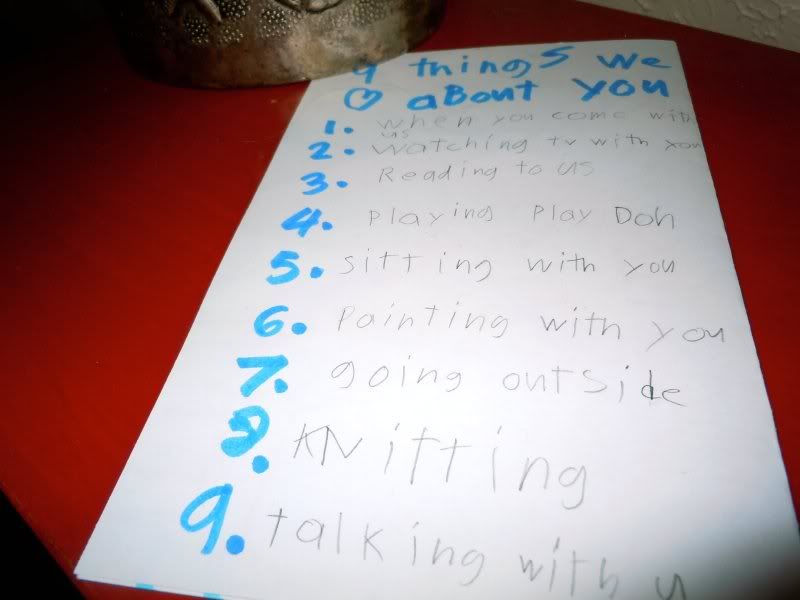 9 things we
♡ about you
1. when you come with
us
2. watching tv with you
3. Reading to us
4. playing play Doh
5. sitting with you
6. painting with you
7. going outside
8. KNitting
9. talking with y